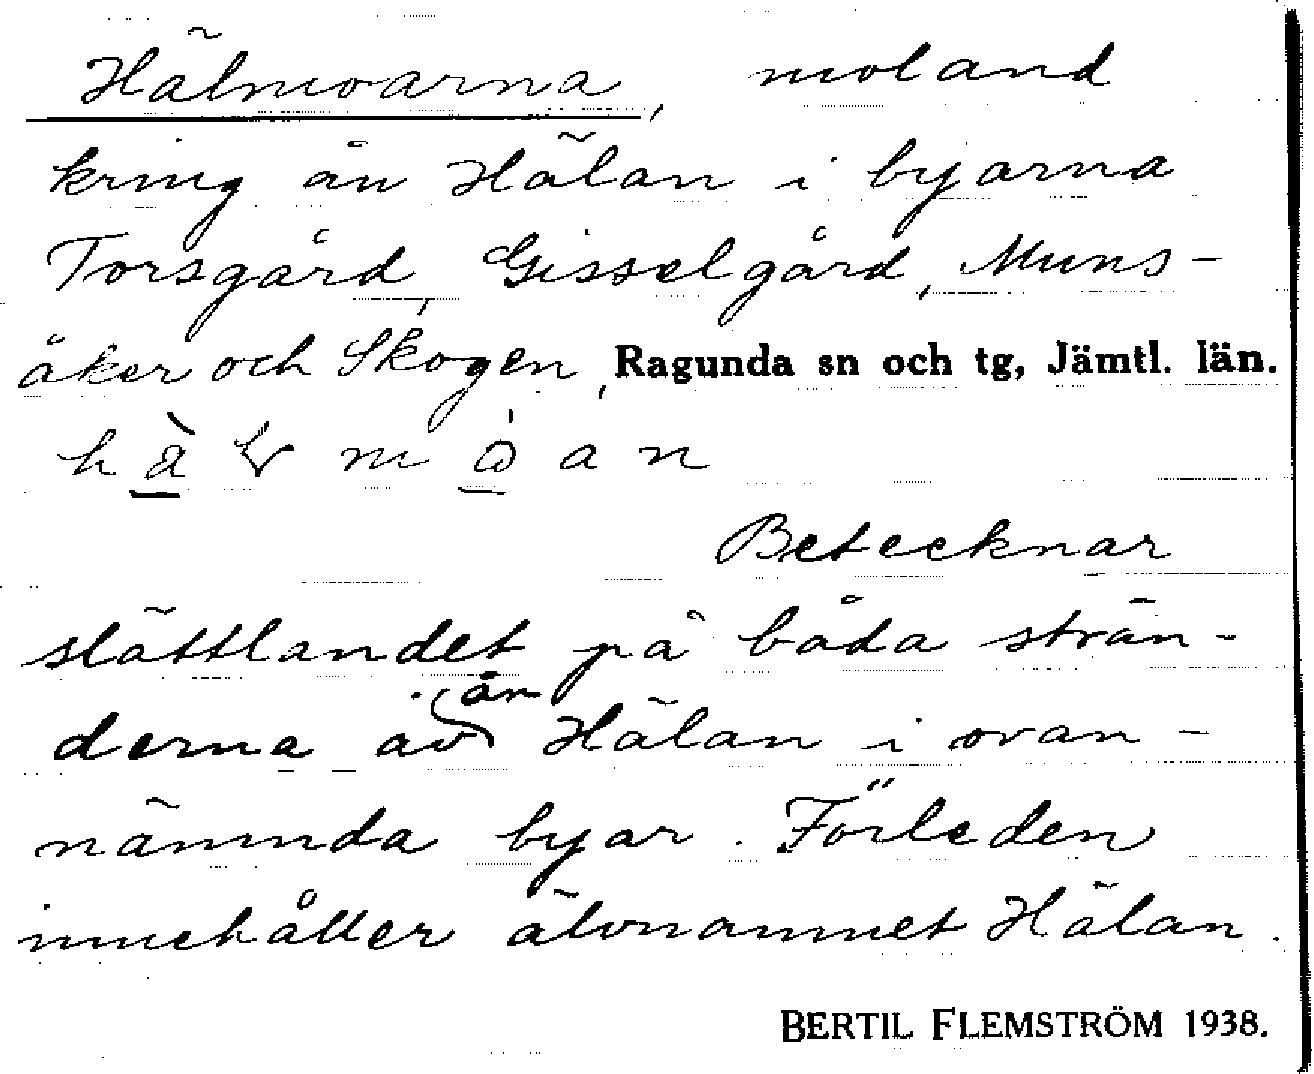 Hälmoarna, moland
kring ån Hälan i byarna
Torsgård, Gisselgård, Muns-
åker och Skogen, Ragunda sn och tg, Jämtl. län.
Betecknar
slättlandet på båda strän-
derna av ån Hälan i ovan-
nämnda byar. Förleden
innehåller älvnamnet Hälan.
BERTIL FLEMSTRÖM 1938.